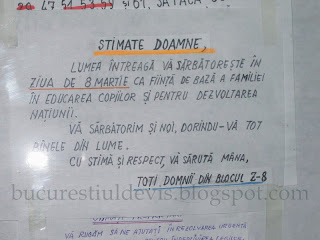 47 54 53 59 ȘI 61, SĂ FACĂ
STIMATE DOAMNE,
LUMEA ÎNTREAGĂ VĂ SĂRBĂTOREȘTE ÎN
ZIUA DE 8 MARTIE CA FIINȚĂ DE BAZĂ A FAMILIEI
ÎN EDUCAREA COPIILOR ȘI PENTRU DEZVOLTAREA
NAȚIUNII.
VĂ SĂRBĂTORIM ȘI NOI, DORINDU-VĂ TOT
BINELE DIN LUME.
CU STIMĂ ȘI RESPECT, VĂ SĂRUTĂ MÂNA,
TOȚI DOMNII DIN BLOCUL Z-8
bucurestiuldevis.blogspot.com
VĂ RUGĂM SĂ NE AJUTAȚI ÎN REZOLVAREA URGENTĂ